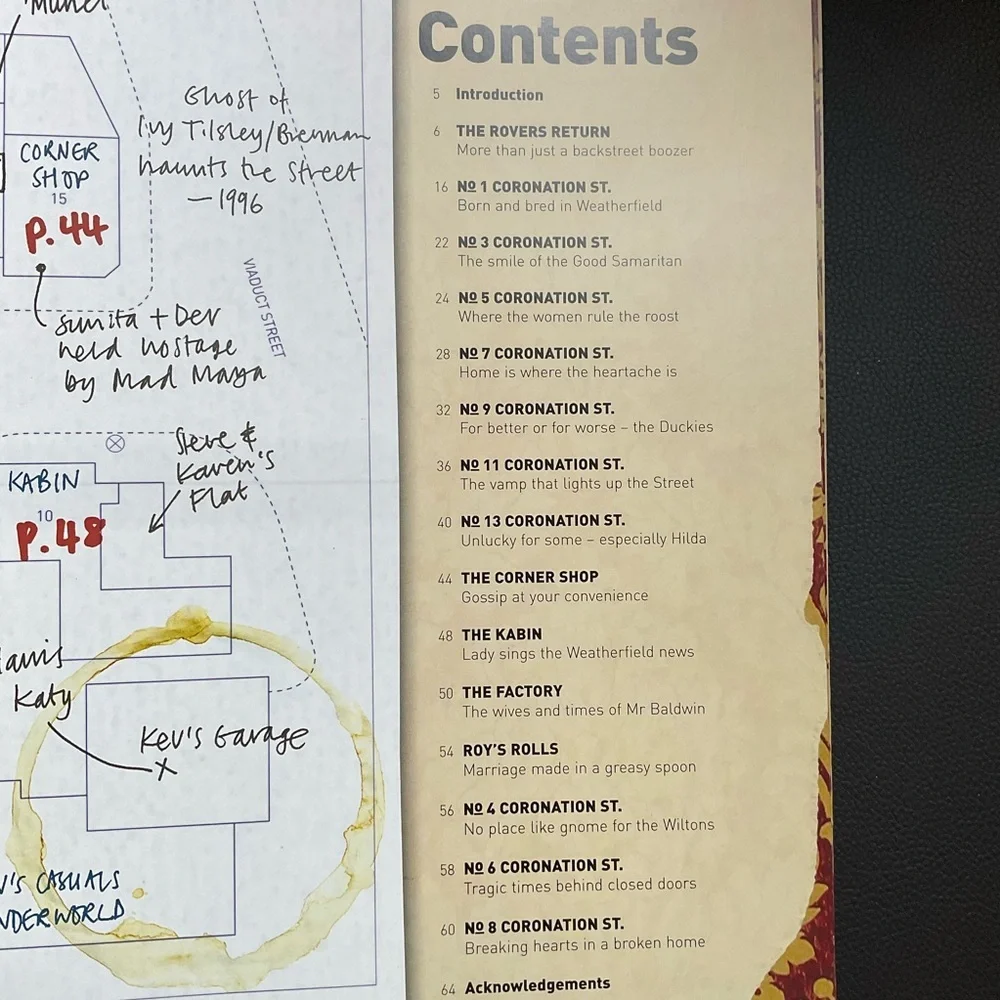 Muriel
Ghost of
Ivy Tilsley/Brennan
haunts the Street
— 1996
CORNER
SHOP
15
P.44
VIADUCT STREET
Sunita + Dev
held hostage
by Mad Maya
Steve &
Karen's
Flat
KABIN
10
P.48
Katy
Kev's Garage
X
CASUALS
Contents
5 Introduction
6 THE ROVERS RETURN
More than just a backstreet boozer
16 Nº 1 CORONATION ST.
Born and bred in Weatherfield
22 Nº 3 CORONATION ST.
The smile of the Good Samaritan
24 Nº 5 CORONATION ST.
Where the women rule the roost
28 Nº 7 CORONATION ST.
Home is where the heartache is
32 Nº 9 CORONATION ST.
For better or for worse – the Duckies
36 Nº 11 CORONATION ST.
The vamp that lights up the Street
40 Nº 13 CORONATION ST.
Unlucky for some – especially Hilda
44 THE CORNER SHOP
Gossip at your convenience
48 THE KABIN
Lady sings the Weatherfield news
50 THE FACTORY
The wives and times of Mr Baldwin
54 ROY'S ROLLS
Marriage made in a greasy spoon
56 Nº 4 CORONATION ST.
No place like gnome for the Wiltons
58 Nº 6 CORONATION ST.
Tragic times behind closed doors
60 Nº 8 CORONATION ST.
Breaking hearts in a broken home
64 Acknowledgements